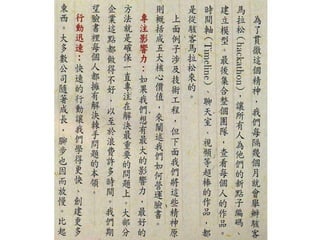 為了貫徹這個精神，我們每隔幾個月就會舉辦駭客
馬拉松（hackathon），讓所有人為他們的新點子編碼、
建立模型。最後集合整個團隊，查看每個人的作品。
時間軸（Timeline）、聊天室、視頻等超棒的作品，都
是從駭客馬拉松來的。
上面例子涉及技術工程，但下面我們將這些精神原
則概括成五大核心價值，來闡述我們如何營運臉書。
專注影響力：如果我們想有最大的影響力，最好的
方法就是確保一直專注在解決最重要的問題上。大部分
企業這點都做得不好，以至於浪費許多時間。我們期
望臉書裡每個人都擁有解決棘手問題的本領。
行動迅速：快速的行動讓我們學得更快，創建更多
東西。大多數公司隨著成長，腳步也因而放慢。比起